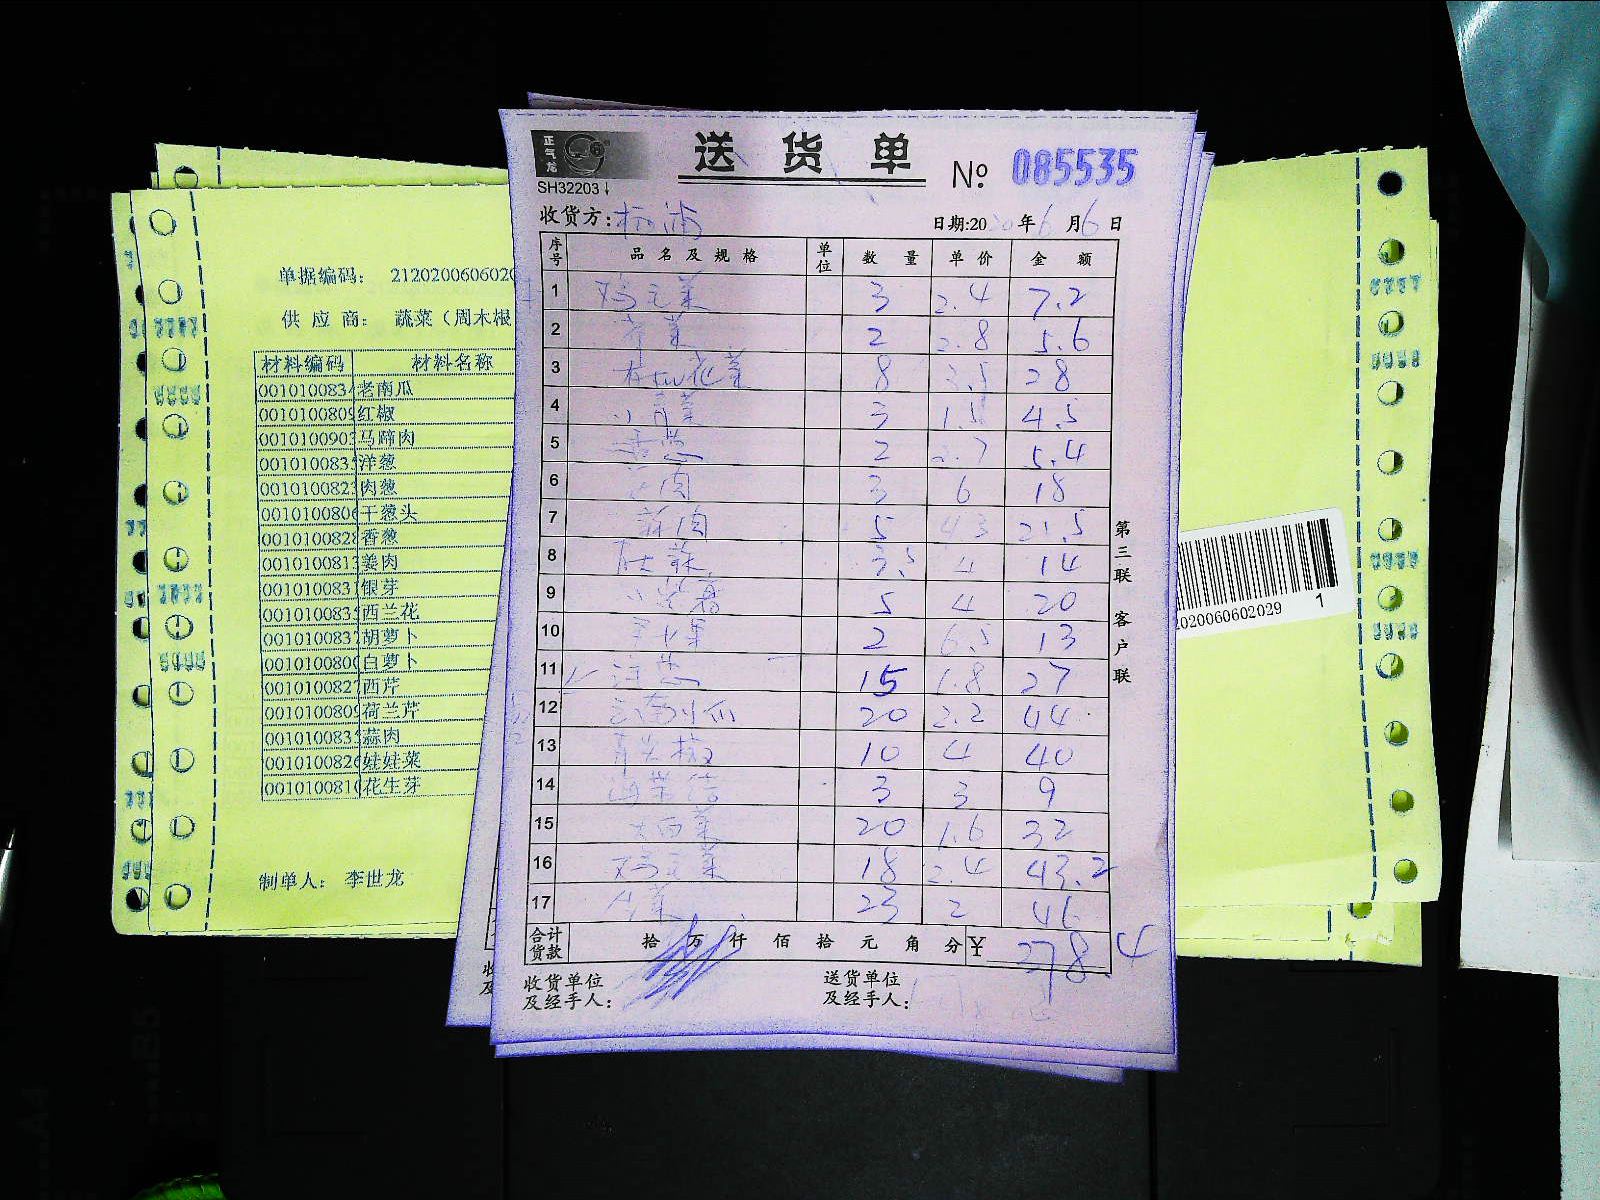 正气龙
SH32203
送货单
№ 085535
收货方:
日期:20 年6月6日
序号 品名及规格 单位 数量 单价 金额
1 3 2.4 7.2
2 2 2.8 5.6
3 有机花菜 8 3.5 28
4 小青菜 3 1.5 4.5
5 香葱 2 2.7 5.4
6 肉 3 6 18
7 蒜肉 5 4.3 21.5
8 3.5 4 14
9 5 4 20
10 2 6.5 13
11 洋葱 15 1.8 27
12 20 2.2 44
13 青尖椒 10 4 40
14 3 3 9
15 大白菜 20 1.6 32
16 18 2.4 43.2
17 生菜 23 2 46
合计货款 拾 万 仟 佰 拾 元 角 分 ¥ 378.4
收货单位及经手人:
送货单位及经手人:
第三联 客户联
单据编码: 2120200606020
供应商: 蔬菜(周木根
材料编码 材料名称
001010083 老南瓜
001010080 红椒
001010090 马蹄肉
001010083 洋葱
001010082 肉葱
001010080 干葱头
001010082 香葱
001010081 姜肉
001010083 银芽
001010083 西兰花
001010083 胡萝卜
001010080 白萝卜
001010082 西芹
001010080 荷兰芹
001010083 蒜肉
001010082 娃娃菜
001010081 花生芽
制单人: 李世龙
2020060602029 1